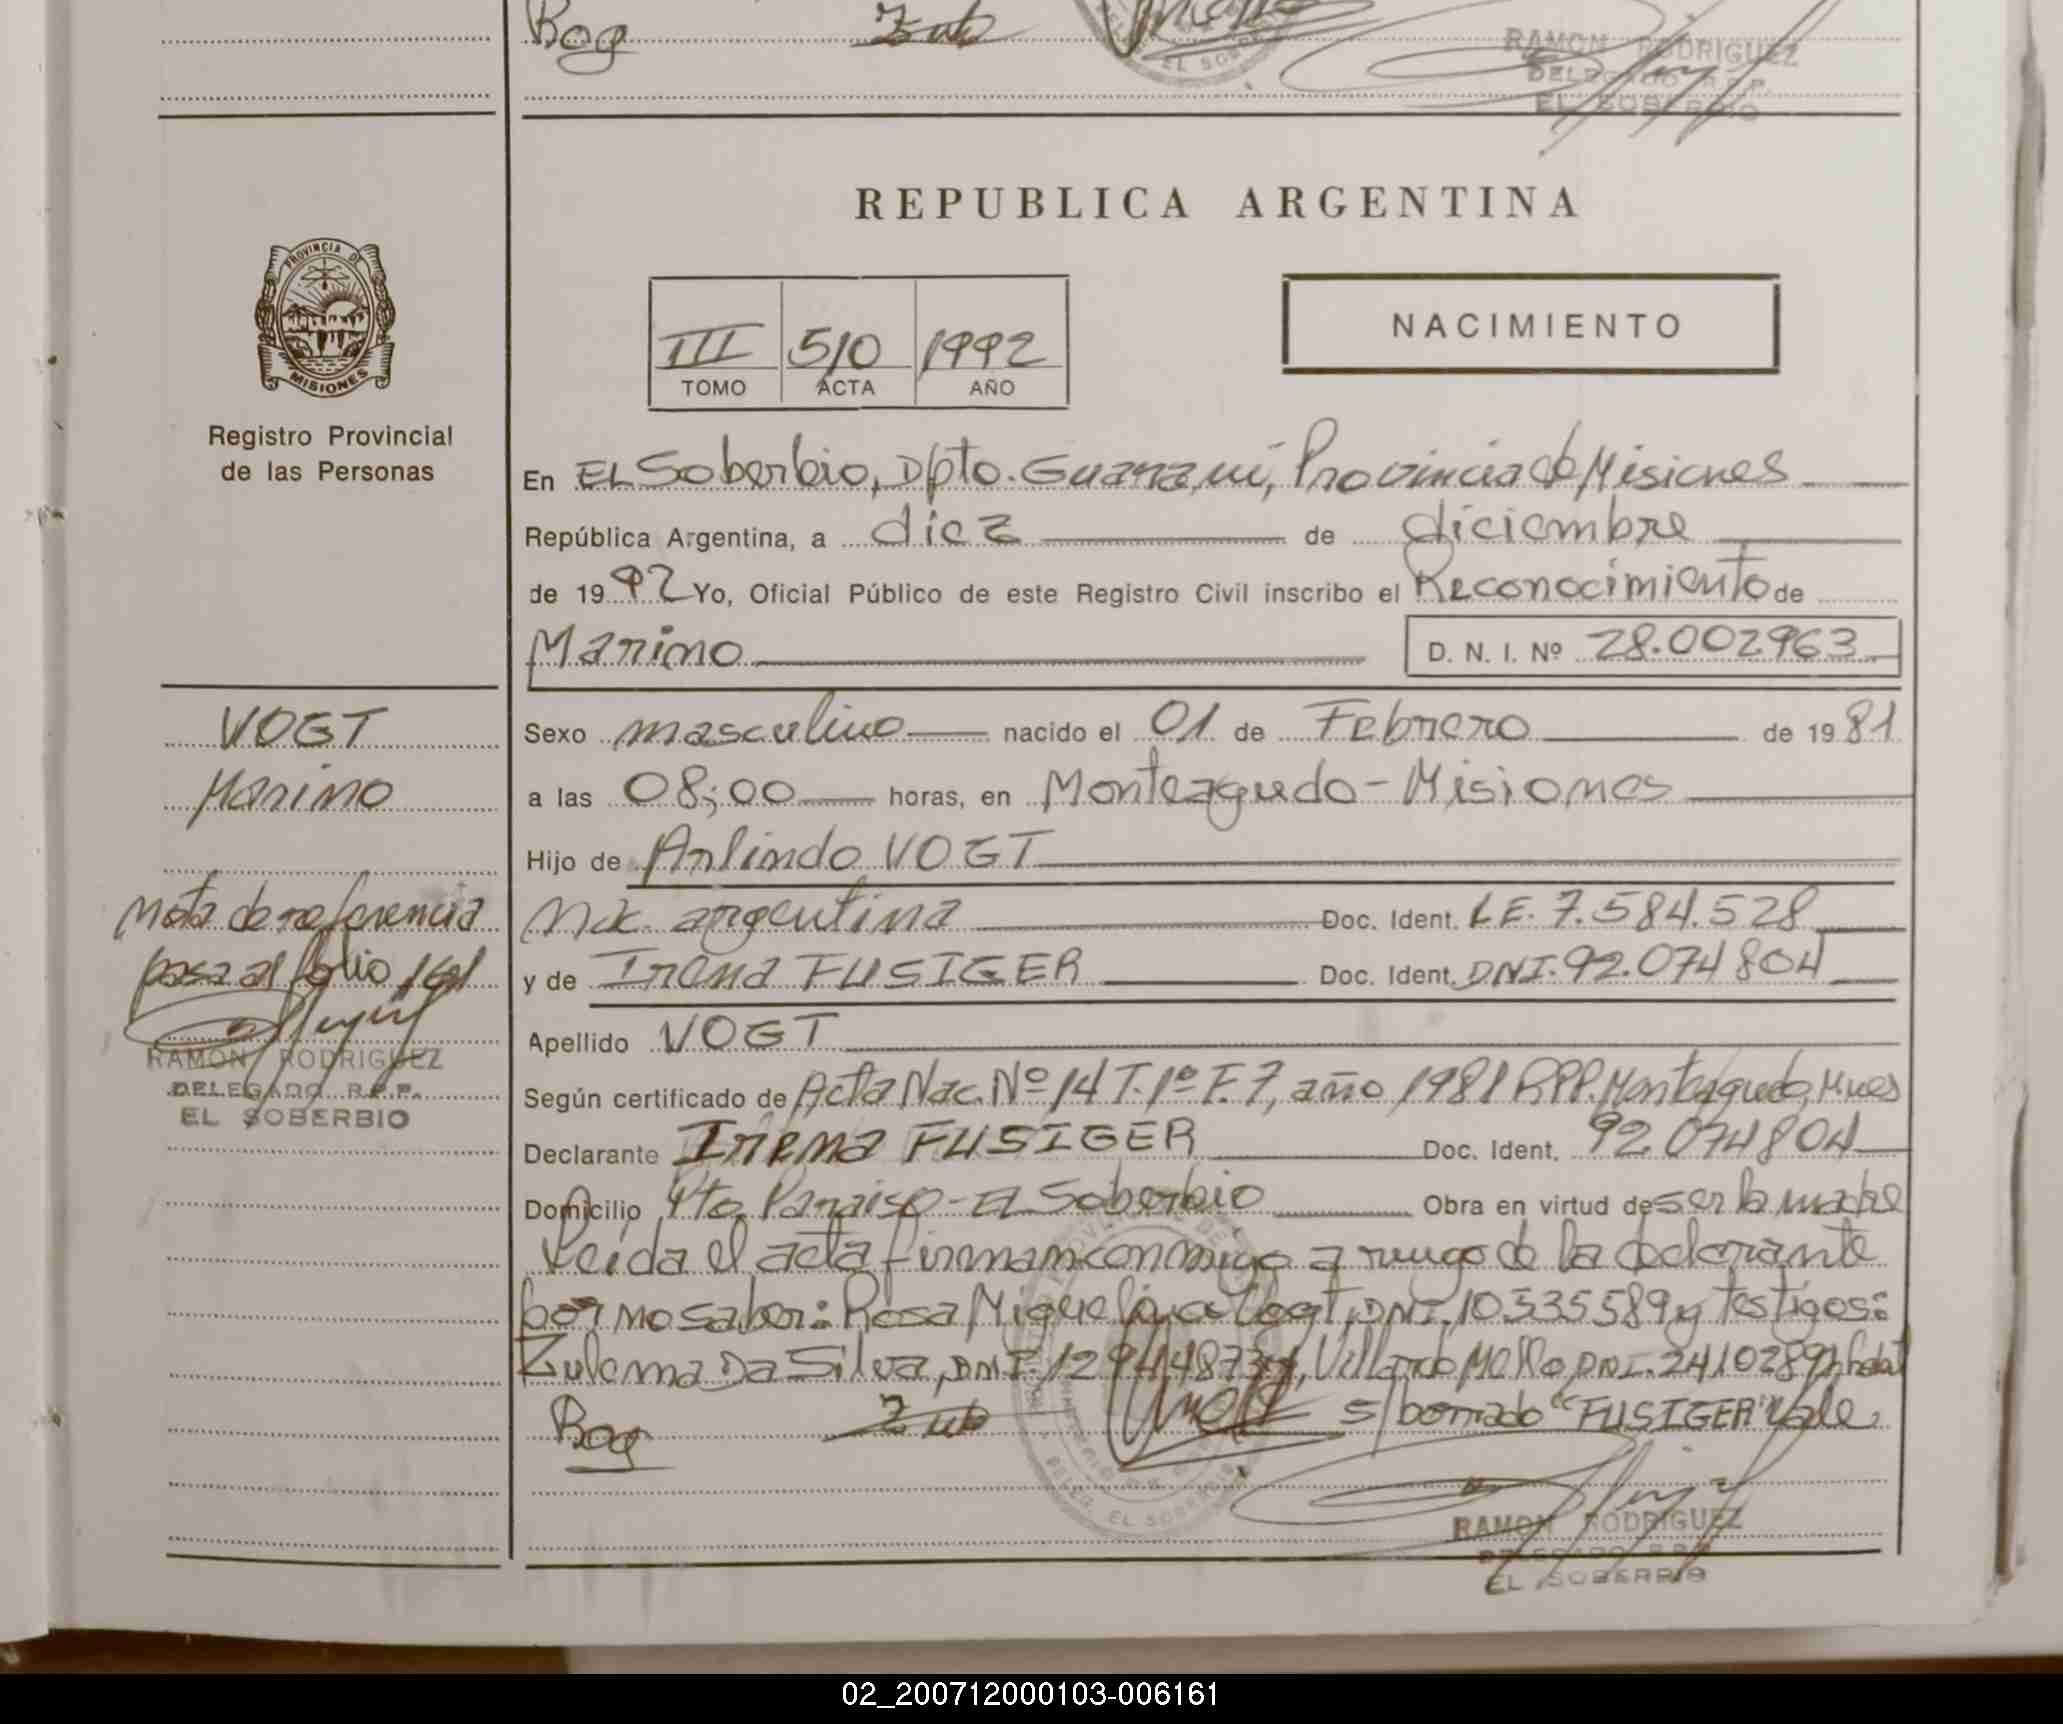 Bog Zub
EL SOBE
RAMON RODRIGUEZ
DELEGADO R.P.P.
EL SOBERBIO
REPUBLICA ARGENTINA
PROVINCIA DE
MISIONES
Registro Provincial
de las Personas
III 510 1992
TOMO ACTA AÑO
NACIMIENTO
En EL Soberbio, Dpto. Guarani, Provincia de Misiones
República Argentina, a diez de diciembre
de 1992 Yo, Oficial Público de este Registro Civil inscribo el Reconocimiento de
Marino D. N. I. Nº 28.002963
VOGT
Marino
Nota de referencia
pasa al folio 161
RAMON RODRIGUEZ
DELEGADO R.P.P.
EL SOBERBIO
Sexo masculino nacido el 01 de Febrero de 1981
a las 08;00 horas, en Monteagudo - Misiones
Hijo de Arlindo VOGT
Nac. argentina Doc. Ident. LE. 7.584.528
y de Irena FUSIGER Doc. Ident. DNI. 92.074804
Apellido VOGT
Según certificado de Acta Nac. Nº 14 T. 1º F. 7, año 1981 RPP. Monteagudo, Mnes
Declarante Irema FUSIGER Doc. Ident. 92.074804
Domicilio Pto. Paraiso - El Soberbio Obra en virtud de ser la madre
Leida el acta firman conmigo a ruego de la declarante
por no saber: Rosa Vogt, DNI. 10535589 y testigos:
Zulema Da Silva, DNI. Mello DNI.
Bog Zub s/borrado "FUSIGER" Vale.
EL SOBERBIO
RAMON RODRIGUEZ
DELEGADO R.P.P.
EL SOBERBIO
02_200712000103-006161